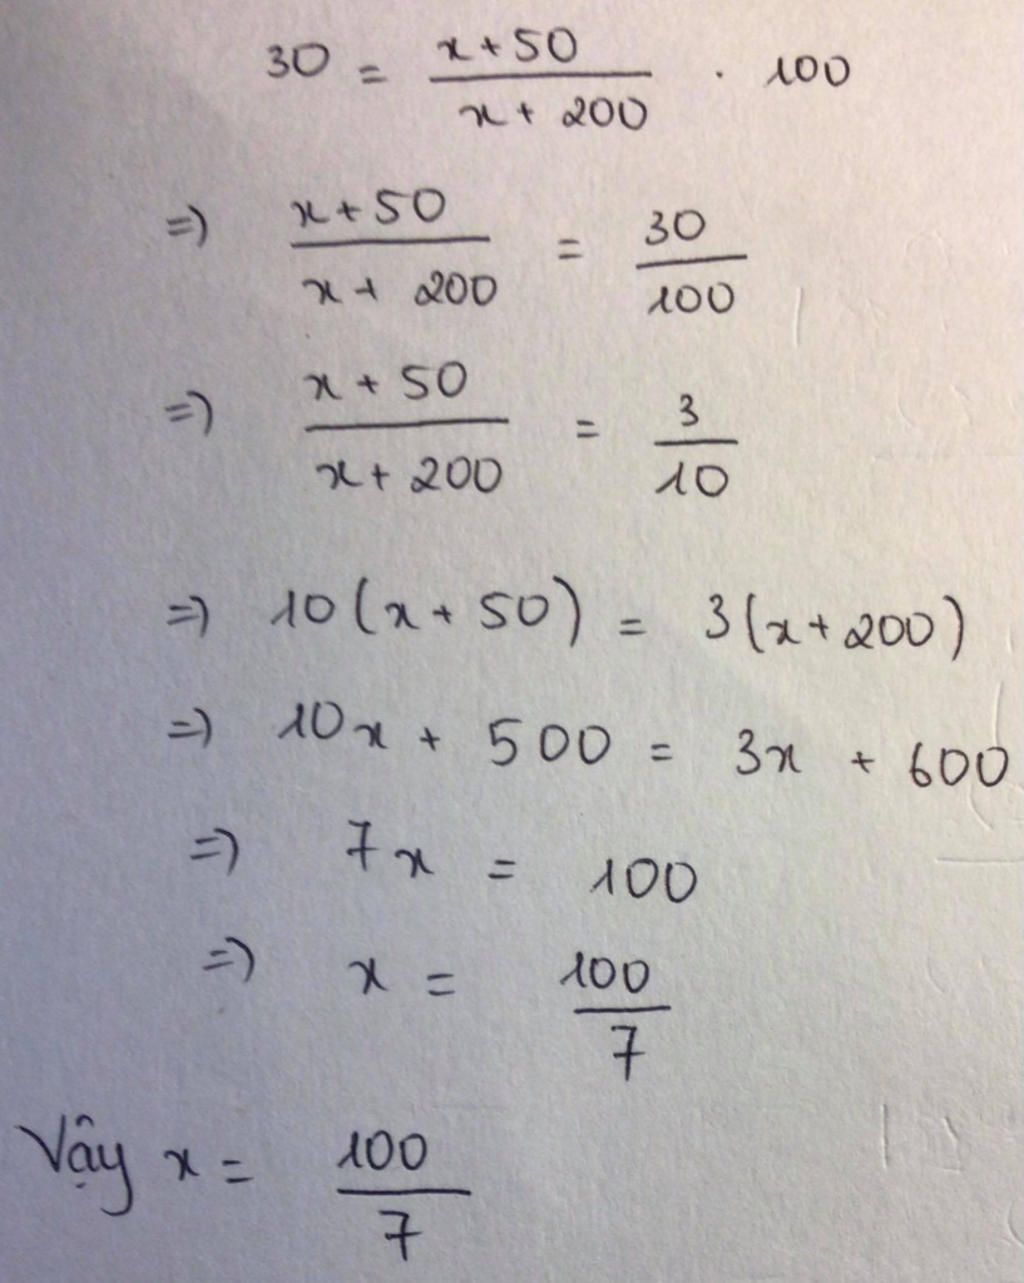 30 = \frac{x+50}{x+200} . 100
=) \frac{x+50}{x+200} = \frac{30}{100}
=) \frac{x+50}{x+200} = \frac{3}{10}
=) 10(x+50) = 3(x+200)
=) 10x + 500 = 3x + 600
=) 7x = 100
=) x = \frac{100}{7}
Vậy x = \frac{100}{7}